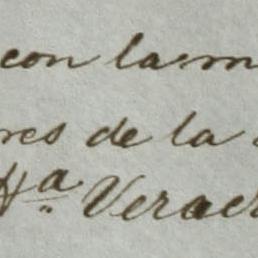 con la m
res de la
Hª Verac